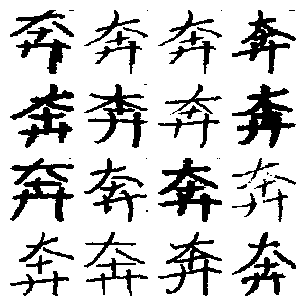 奔奔奔奔
奔奔奔奔
奔奔奔奔
奔奔奔奔